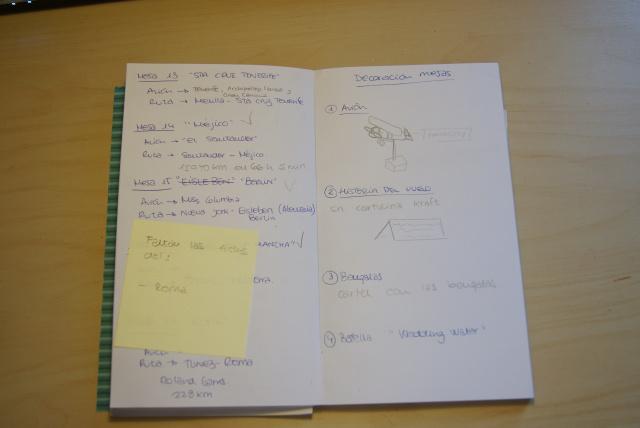 Mesa 13 "STA CRUZ TENERIFE"
Avión → Tenerife, Archipiélago
Gran Canaria
Ruta → Melilla - STA CRUZ TENERIFE
Mesa 14 "Méjico"
Avión → "El Santander"
Ruta → Santander - Méjico
Mesa 15 "EISLEBEN" "BERLIN"
Avión → Miss Columbia
Ruta → Nueva York - Eisleben (Alemania)
Berlin
MANCHA"
Faltan las
del:
- Roma
Ruta → TUNEZ - ROMA
Roland Garros
228 km
Decoración mesas
① Avión
② HISTORIA DEL VUELO
en cartulina kraft
③ Bengalas
cartel con las bengalas
④ Botella "Wedding Water"